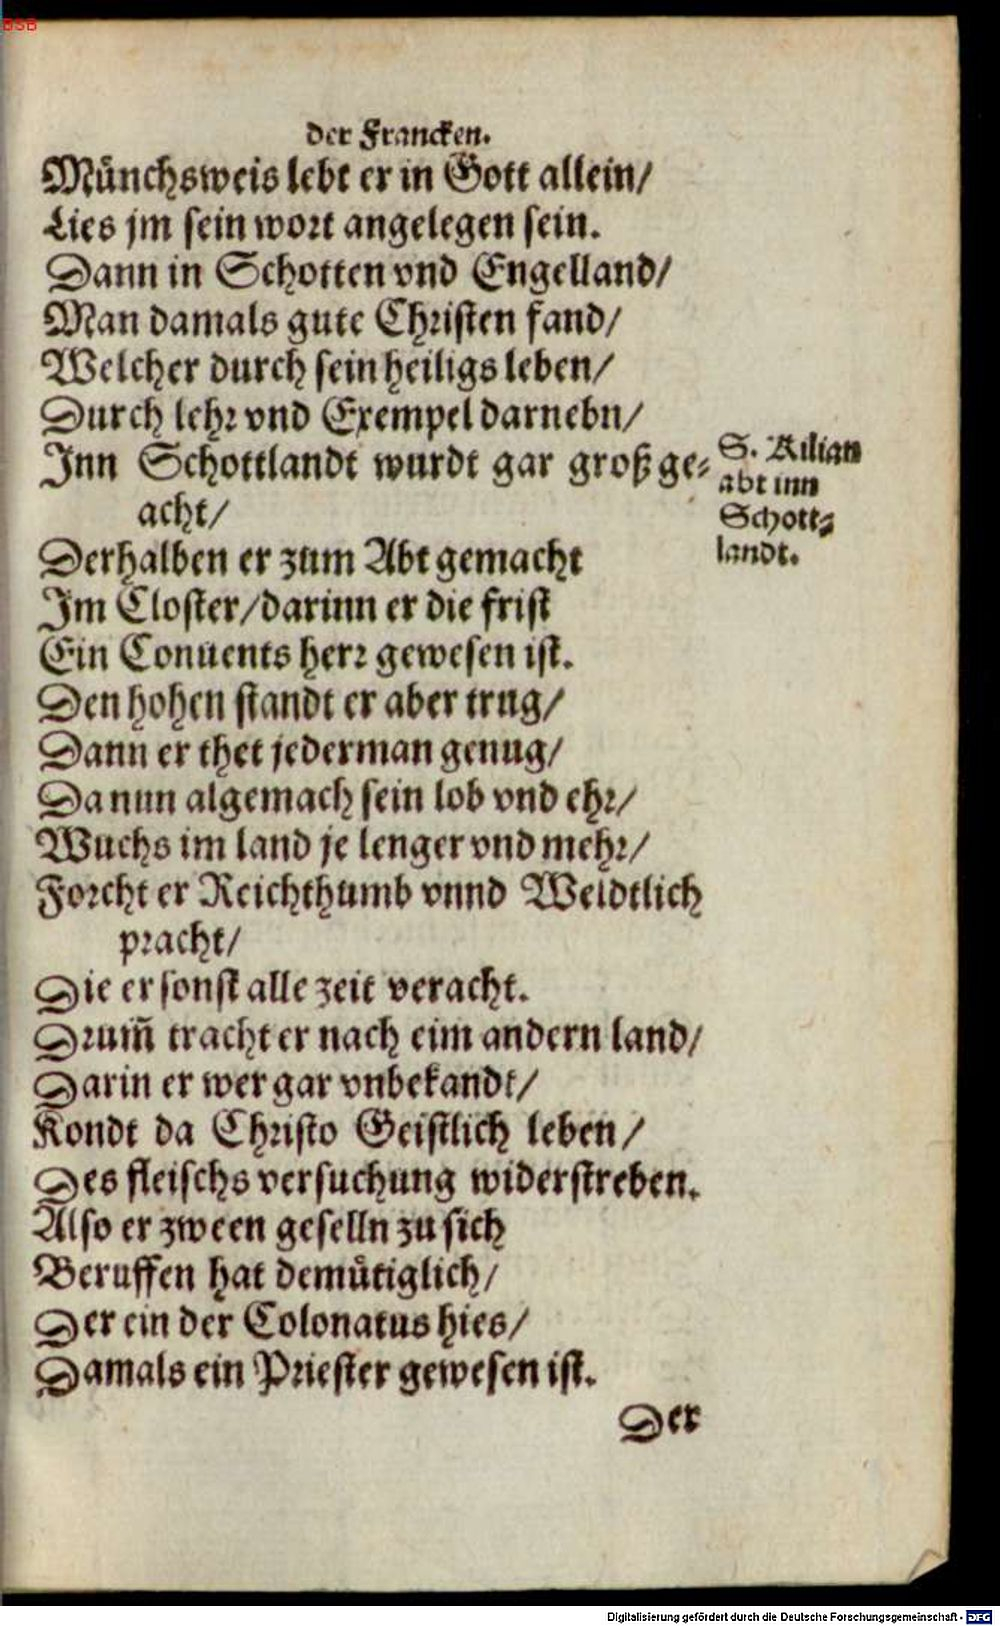 BSB
der Francken.
Münchsweis lebt er in Gott allein/
Lies jm sein wort angelegen sein.
Dann in Schotten vnd Engelland/
Man damals gute Christen fand/
Welcher durch sein heiligs leben/
Durch lehr vnd Exempel darnebn/
Inn Schottlandt wurdt gar groß ge-
acht/
S. Kilian
abt inn
Schott-
landt.
Derhalben er zum Abt gemacht
Im Closter/darinn er die frist
Ein Conuents herr gewesen ist.
Den hohen standt er aber trug/
Dann er thet jederman genug/
Da nun algemach sein lob vnd ehr/
Wuchs im land je lenger vnd mehr/
Forcht er Reichthumb vnnd Weldtlich
pracht/
Die er sonst alle zeit veracht.
Drum̃ tracht er nach eim andern land/
Darin er wer gar vnbekandt/
Kondt da Christo Geistlich leben/
Des fleischs versuchung widerstreben.
Also er zween geselln zu sich
Beruffen hat demütiglich/
Der ein der Colonatus hies/
Damals ein Priester gewesen ist.
Der
Digitalisierung gefördert durch die Deutsche Forschungsgemeinschaft - DFG